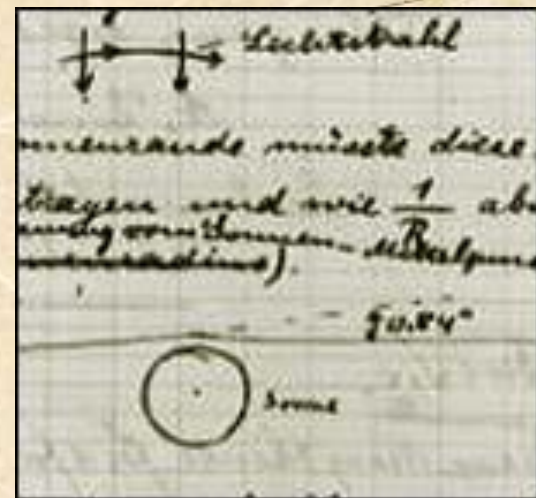 Lichtstrahl
nnenrande müsste diese
tragen und wie 1/R ab
nung vom Sonnen-Mittelpun
nenradius).
0.84"
Sonne